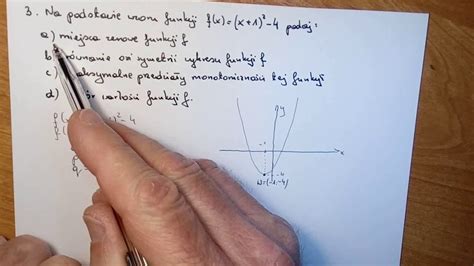 3. Na podstawie wzoru funkcji f(x) = (x+1)² - 4 podaj:
a) miejsca zerowe funkcji f
b) równanie osi symetrii wykresu funkcji f
c) maksymalne przedziały monotoniczności tej funkcji
d) wartości funkcji f.
- 4
y
-1
x
-4
W=(-1,-4)